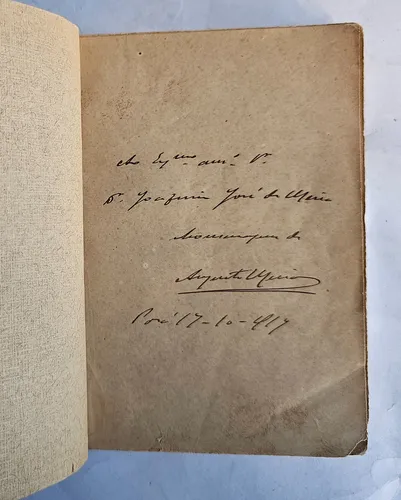 Ao Ex^mo. am^o. Sr.
Dr. Joaquim José de Meira
Homenagem de
Augusto Meira
Pará 17-10-917